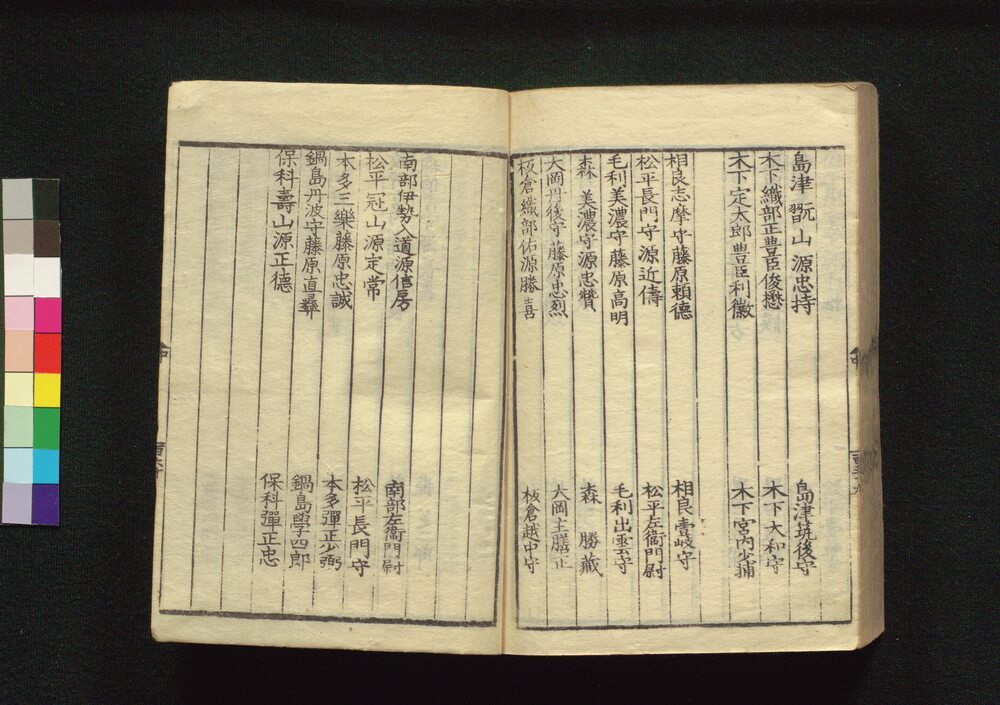 島津翫山源忠持 島津筑後守
木下織部正豊臣俊懋 木下大和守
木下定太郎豊臣利徽 木下宮内少輔
相良志摩守藤原頼德 相良壹岐守
松平長門守源近儔 松平左衞門尉
毛利美濃守藤原高明 毛利出雲守
森美濃守源忠贊 森勝藏
大岡丹後守藤原忠烈 大岡主膳正
板倉織部佑源勝喜 板倉越中守
中
南部伊勢入道源信房 南部左衞門尉
松平冠山源定常 松平長門守
本多三樂藤原忠誠 本多彈正少弼
鍋島丹波守藤原直彜 鍋島學四郎
保科壽山源正德 保科彈正忠
中